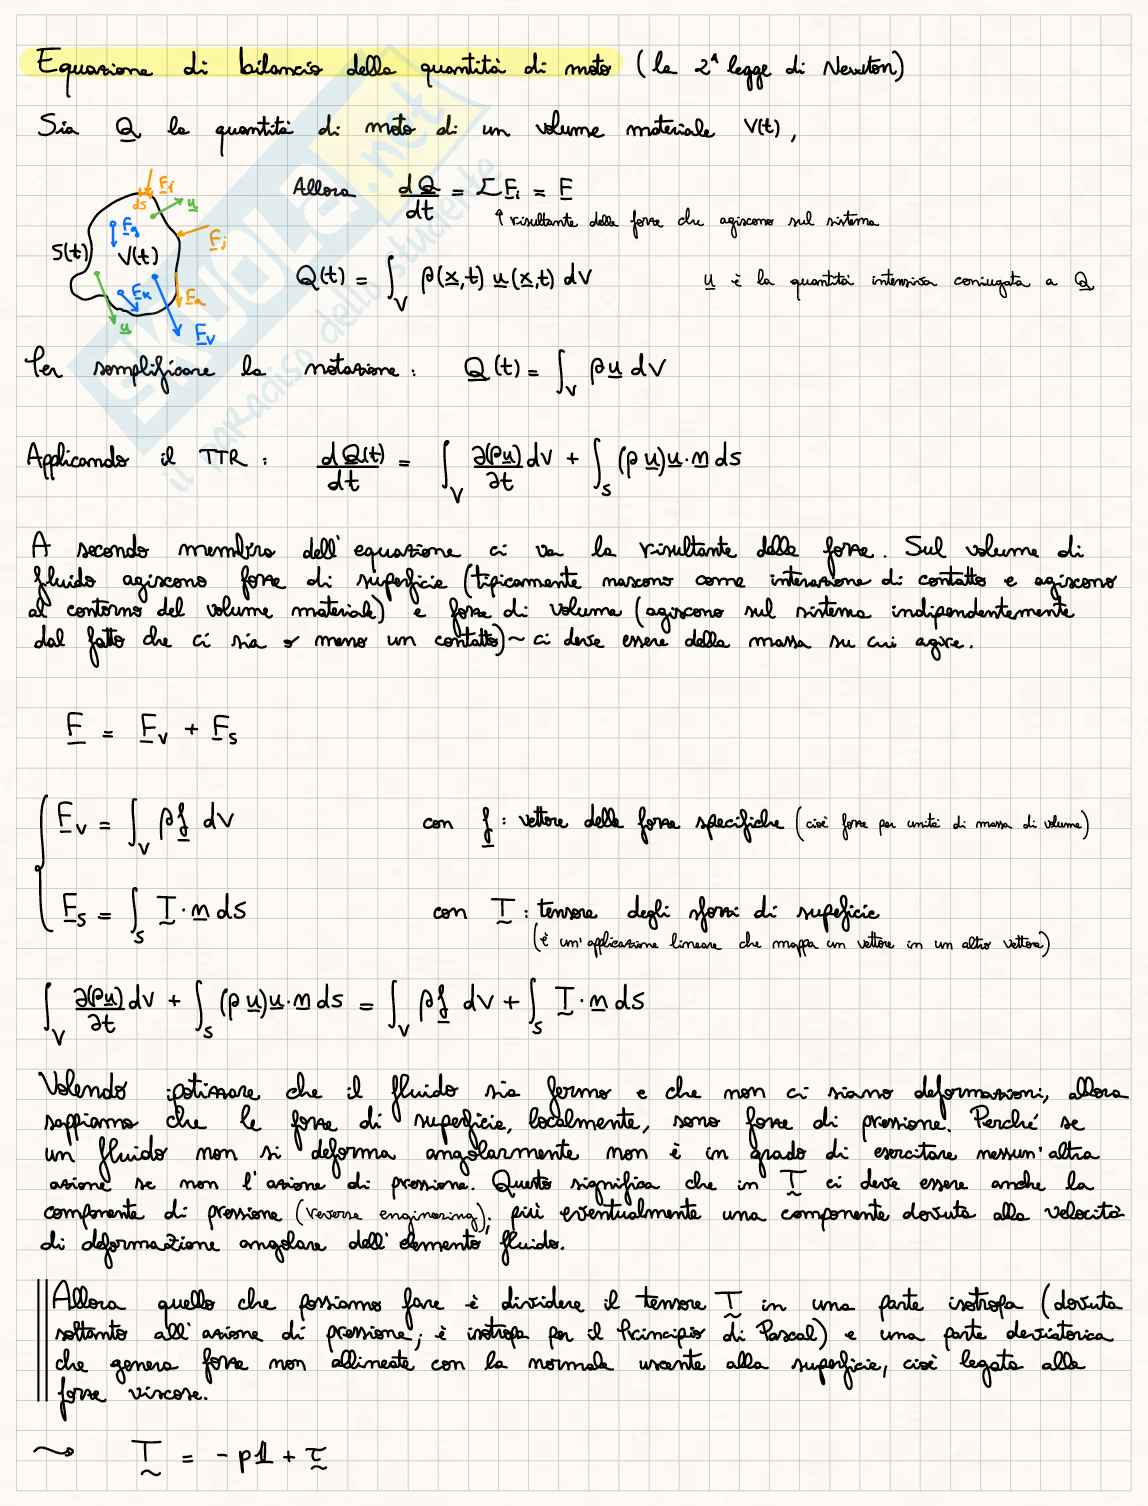 Equazione di bilancio della quantità di moto (la 2ª legge di Newton)
Sia Q la quantità di moto di un volume materiale V(t),
Allora dQ/dt = ΣFi = F
↑ risultante delle forze che agiscono sul sistema
Fi
ds
u
Fg
S(t)
V(t)
Fj
Fk
Fa
u
Fv
Q(t) = ∫_V ρ(x,t) u(x,t) dV
u è la quantità intensiva coniugata a Q
Per semplificare la notazione: Q(t) = ∫_V ρu dV
Applicando il TTR: dQ(t)/dt = ∫_V ∂(ρu)/∂t dV + ∫_S (ρu)u·n dS
A secondo membro dell'equazione ci va la risultante delle forze. Sul volume di
fluido agiscono forze di superficie (tipicamente nascono come interazione di contatto e agiscono
al contorno del volume materiale) e forze di volume (agiscono sul sistema indipendentemente
dal fatto che ci sia o meno un contatto) ~ ci deve essere della massa su cui agire.
F = Fv + Fs
Fv = ∫_V ρf dV con f: vettore delle forze specifiche (cioè forze per unità di massa di volume)
Fs = ∫_S T·n dS con T: tensore degli sforzi di supeficie
(è un'applicazione lineare che mappa un vettore in un altro vettore)
∫_V ∂(ρu)/∂t dV + ∫_S (ρu)u·n dS = ∫_V ρf dV + ∫_S T·n dS
Volendo ipotizzare che il fluido sia fermo e che non ci siano deformazioni, allora
sappiamo che le forze di superficie, localmente, sono forze di pressione. Perché se
un fluido non si deforma angolarmente non è in grado di esercitare nessun'altra
azione se non l'azione di pressione. Questo significa che in T ci deve essere anche la
componente di pressione (reverse enginering), più eventualmente una componente dovuta alla velocità
di deformazione angolare dell'elemento fluido.
Allora quello che possiamo fare è dividere il tensore T in una parte isotropa (dovuta
soltanto all'azione di pressione; è isotropa per il Principio di Pascal) e una parte deviatorica
che genera forze non allineate con la normale uscente alla superficie, cioè legata alle
forze viscose.
⇝ T = -p𝟙 + τ
SKUOLA.net
il paradiso dello studente